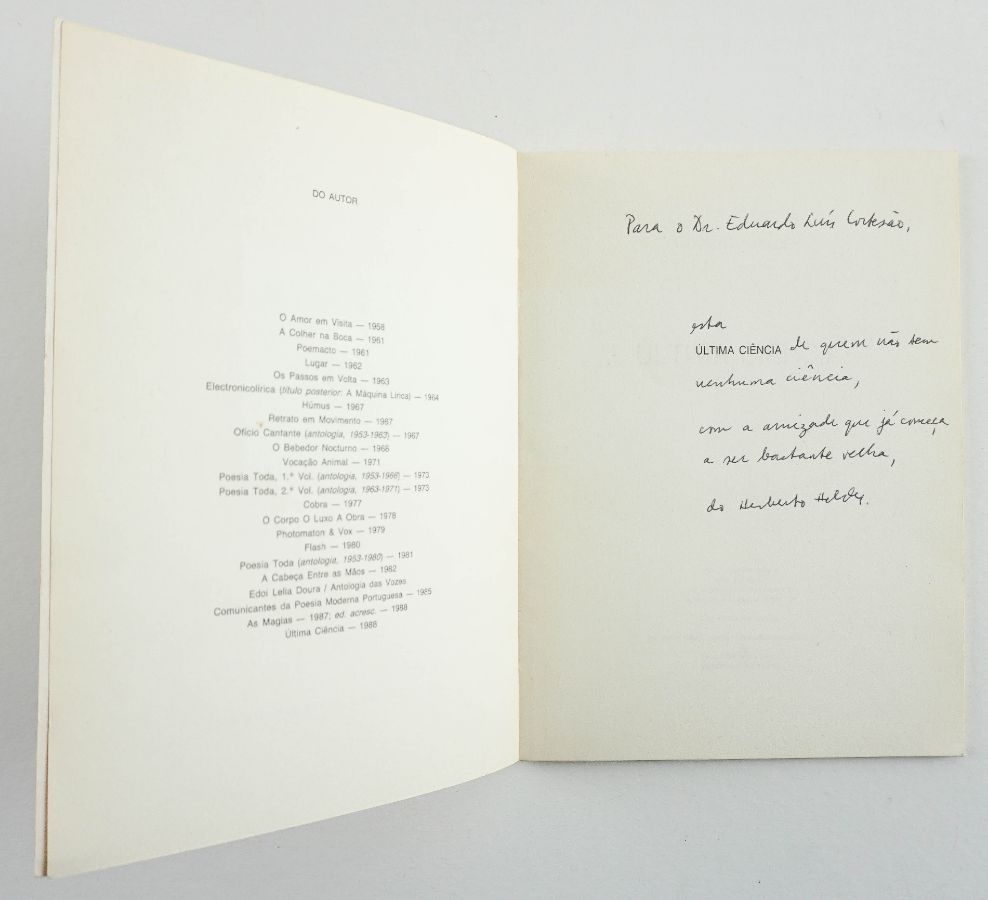 DO AUTOR
O Amor em Visita — 1958
A Colher na Boca — 1961
Poemacto — 1961
Lugar — 1962
Os Passos em Volta — 1963
Electronicolírica (título posterior: A Máquina Lírica) — 1964
Húmus — 1967
Retrato em Movimento — 1967
Ofício Cantante (antologia, 1953-1963) — 1967
O Bebedor Nocturno — 1968
Vocação Animal — 1971
Poesia Toda, 1.º Vol. (antologia, 1953-1966) — 1973
Poesia Toda, 2.º Vol. (antologia, 1963-1971) — 1973
Cobra — 1977
O Corpo O Luxo A Obra — 1978
Photomaton & Vox — 1979
Flash — 1980
Poesia Toda (antologia, 1953-1980) — 1981
A Cabeça Entre as Mãos — 1982
Edoi Lelia Doura / Antologia das Vozes
Comunicantes da Poesia Moderna Portuguesa — 1985
As Magias — 1987; ed. acresc. — 1988
Última Ciência — 1988
Para o Dr. Eduardo Luís Cortesão,
esta
ÚLTIMA CIÊNCIA de quem não tem
nenhuma ciência,
com a amizade que já começa
a ser bastante velha,
do Herberto Helder.